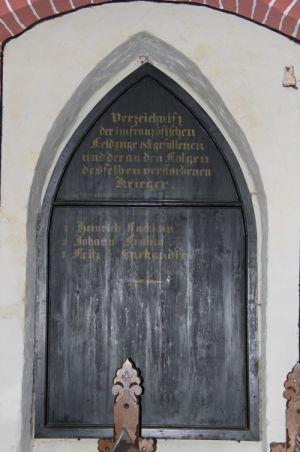 Verzeichniſs
der im französischen
Feldzuge gefallenen
und der an den Folgen
desselben verstorbenen
Krieger
1 Heinrich
2 Johann
3 Fritz